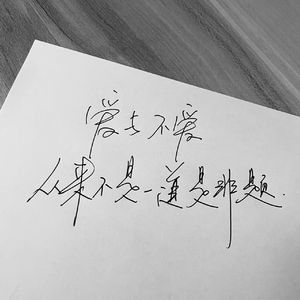 爱与不爱
从来不是一道是非题.